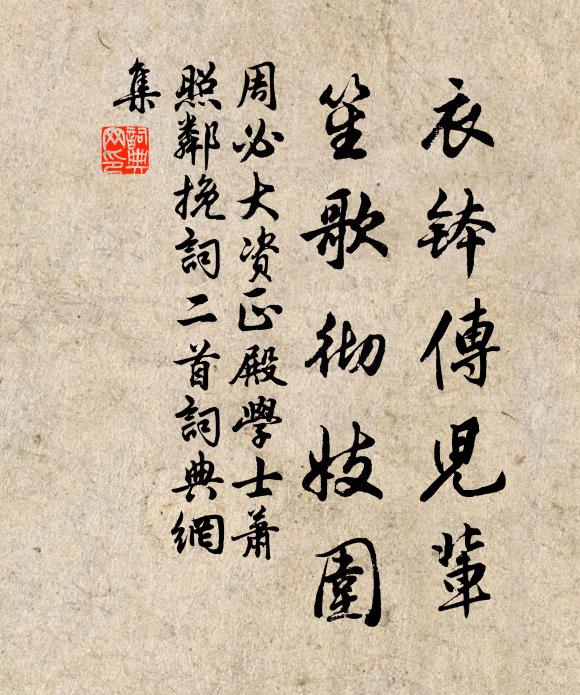 衣鉢傳兒輩
笙歌彻妓圍
周必大资正殿學士蕭
照鄰挽詞二首詞典網
集
詞典
网印